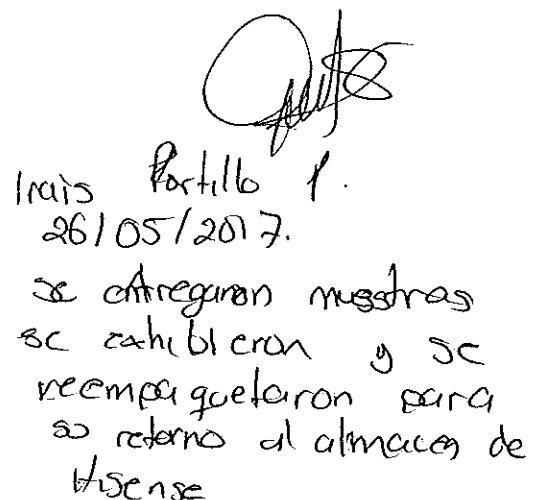 Irais Portillo P.
26/05/2017.
se entregaron muestras
se exhibieron y se
reempaquetaron para
su retorno al almacen de
Hisense